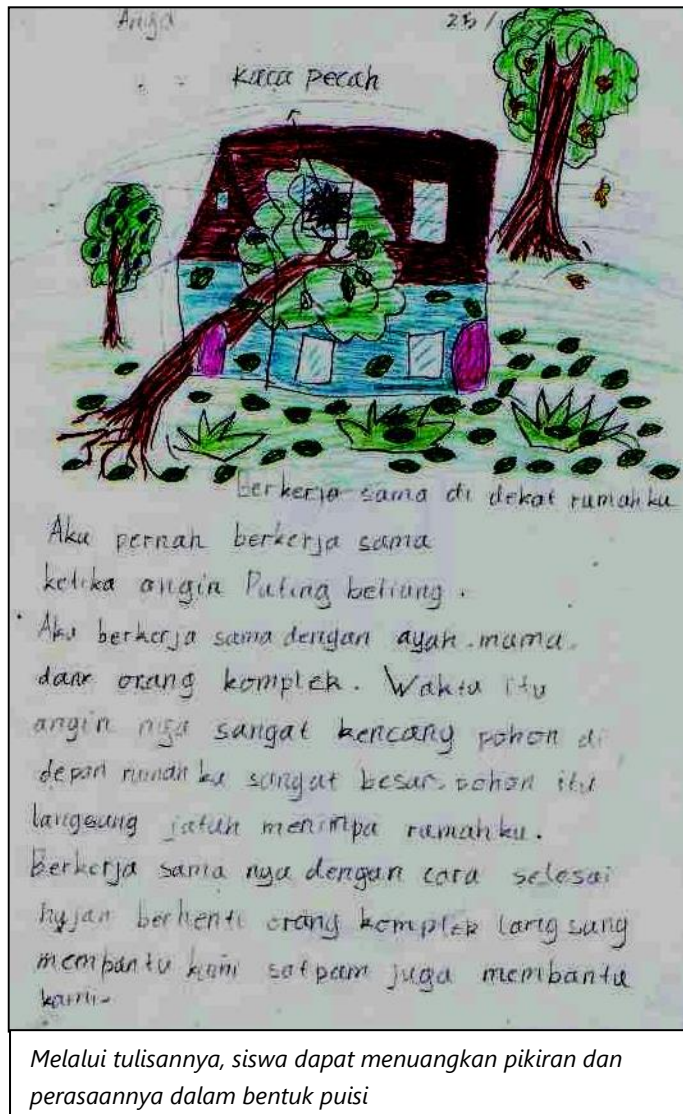 25/
kaca pecah
Berkerja sama di dekat rumahku
Aku pernah berkerja sama
ketika angin Puting beliung.
Aku berkerja sama dengan ayah. mama.
dan orang komplek. Waktu itu
angin nya sangat kencang pohon di
depan rumah ku sangat besar. pohon itu
langsung jatuh menimpa rumahku.
Berkerja sama nya dengan cara selesai
hujan berhenti orang komplek langsung
membantu kami satpam juga membantu
kami.
Melalui tulisannya, siswa dapat menuangkan pikiran dan
perasaannya dalam bentuk puisi